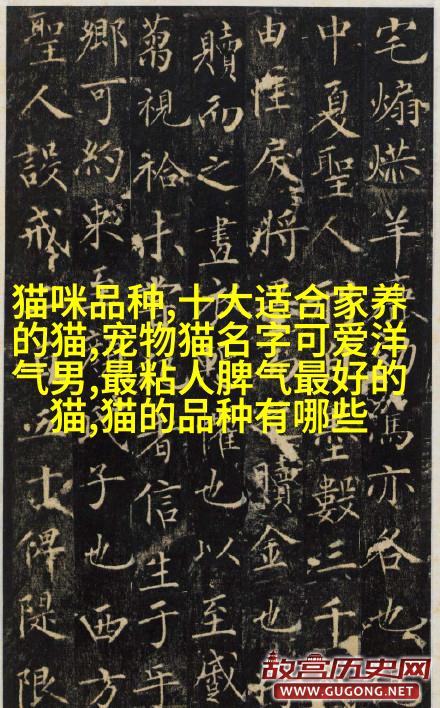 宅煽羊亦各也
中夏聖人數三千
由性戾將贖金也
贖而之也以至戚
視袷者信生于年
鄉可約束子也西方
聖人設戒五士俾隄限
猫咪品种,十大适合家养
的猫,宠物猫名字可爱洋
气男,最粘人脾气最好的
猫,猫的品种有哪些
故宫历史网
WWW.GUGONG.NET